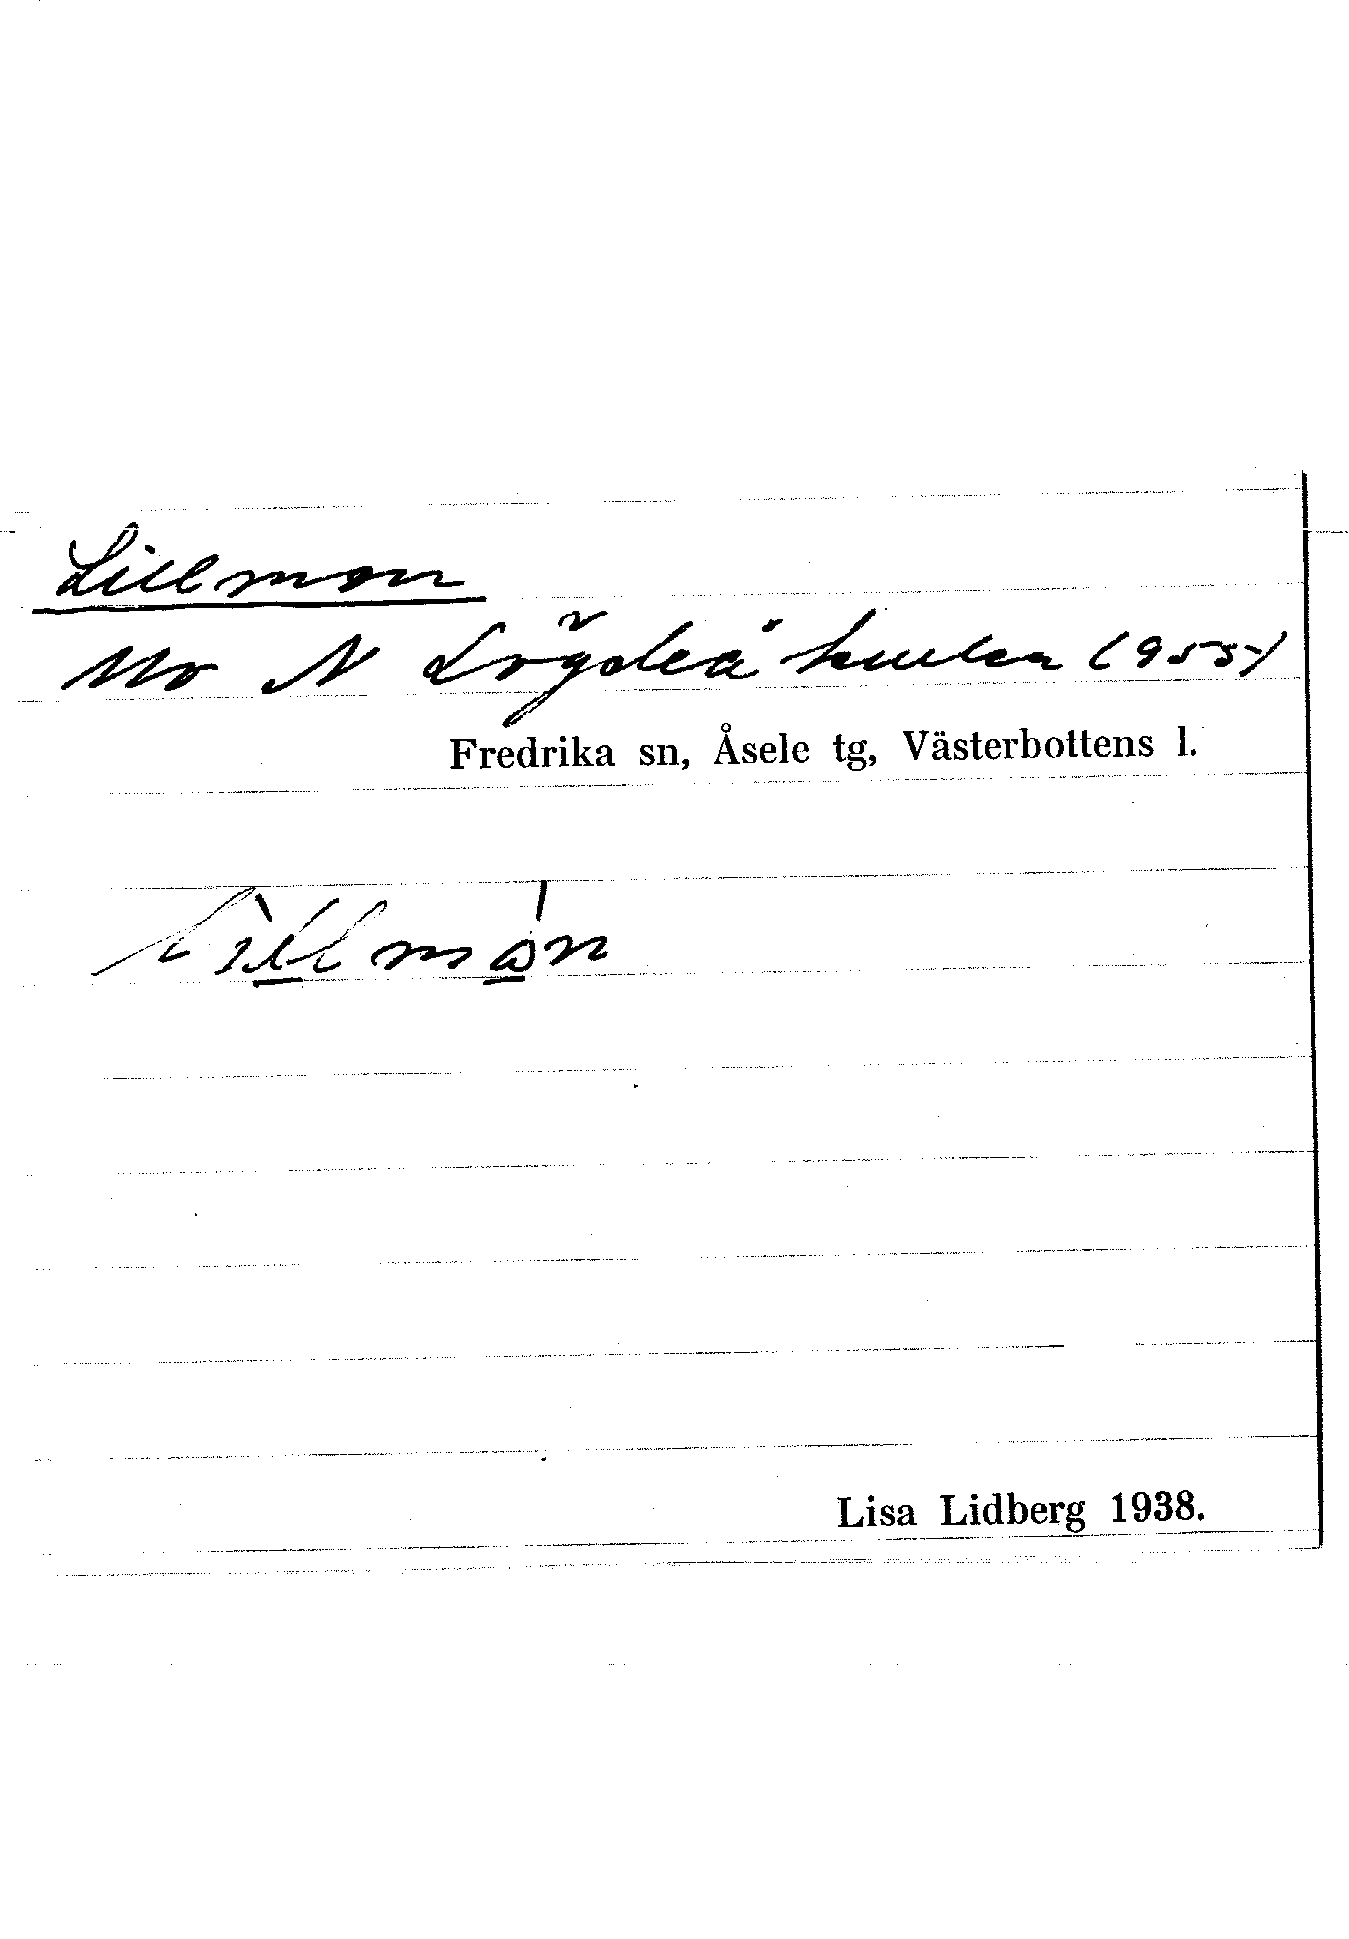 Lillmon
Mo N Lögdeå kulla (955)
Fredrika sn, Åsele tg, Västerbottens l.
Lisa Lidberg 1938.